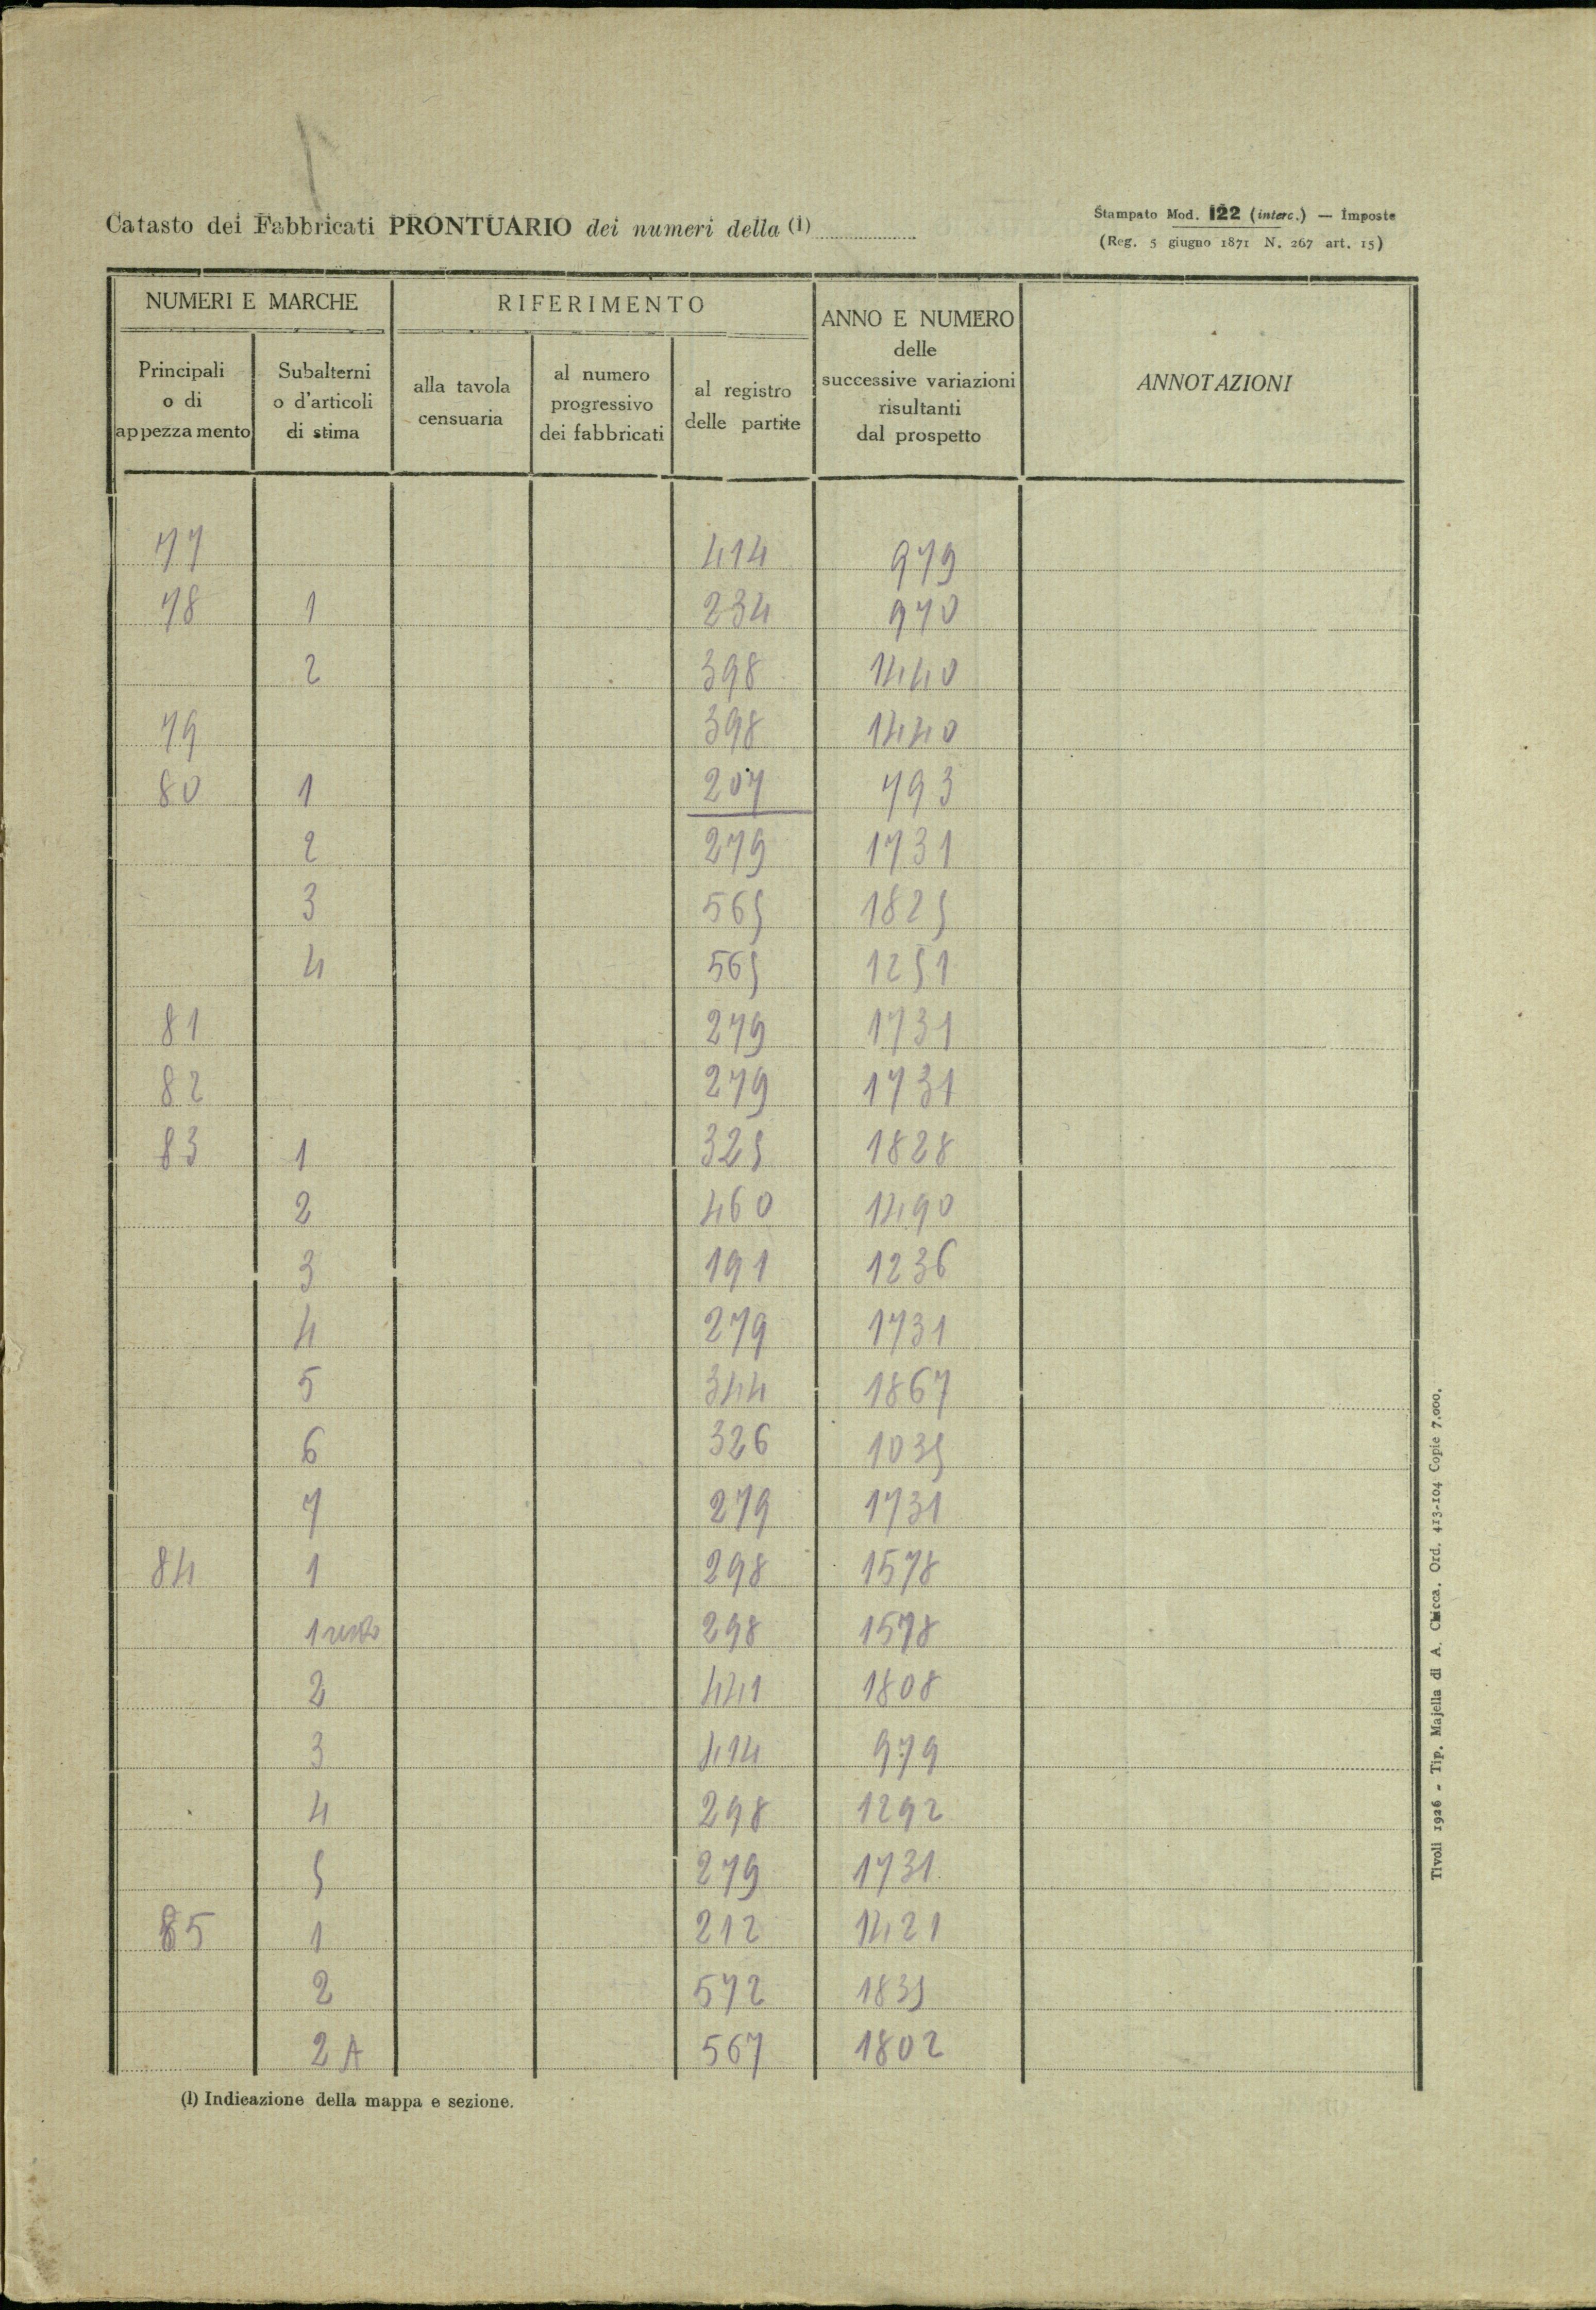 Catasto dei Fabbricati PRONTUARIO dei numeri della (1)
Stampato Mod. 122 (interc.) — Imposte
(Reg. 5 giugno 1871 N. 267 art. 15)
NUMERI E MARCHE
RIFERIMENTO
ANNO E NUMERO
delle
successive variazioni
risultanti
dal prospetto
ANNOTAZIONI
Principali
o di
appezzamento
Subalterni
o d'articoli
di stima
alla tavola
censuaria
al numero
progressivo
dei fabbricati
al registro
delle partite
77 414 979
78 1 234 970
2 398 1440
79 398 1440
80 1 207 793
2 279 1731
3 565 1825
4 565 1251
81 279 1731
82 279 1731
83 1 325 1828
2 460 1490
3 191 1236
4 279 1731
5 344 1867
6 326 1035
7 279 1731
84 1 298 1578
1 resto 298 1578
2 441 1808
3 414 979
4 298 1292
5 279 1731
85 1 212 1421
2 572 1835
2 A 567 1802
(1) Indicazione della mappa e sezione.
Tivoli 1926 - Tip. Majella di A. Chicca. Ord. 413-104 Copie 7.000.